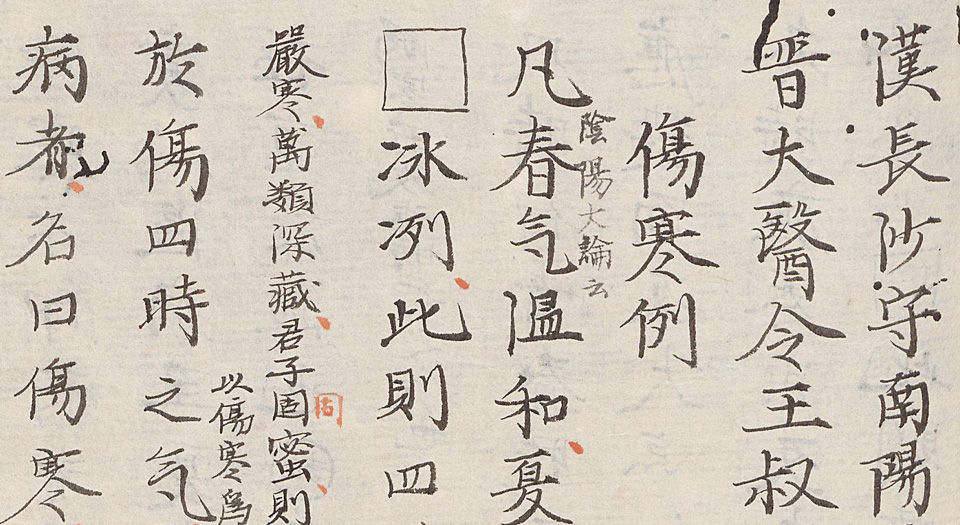 漢長沙守南陽
晋大醫令王叔
傷寒例
陰陽大論云
凡春气温和夏
冰冽此則四
嚴寒萬類深藏君子固蜜則
周
以傷寒為
於傷四時之气
病者名曰傷寒